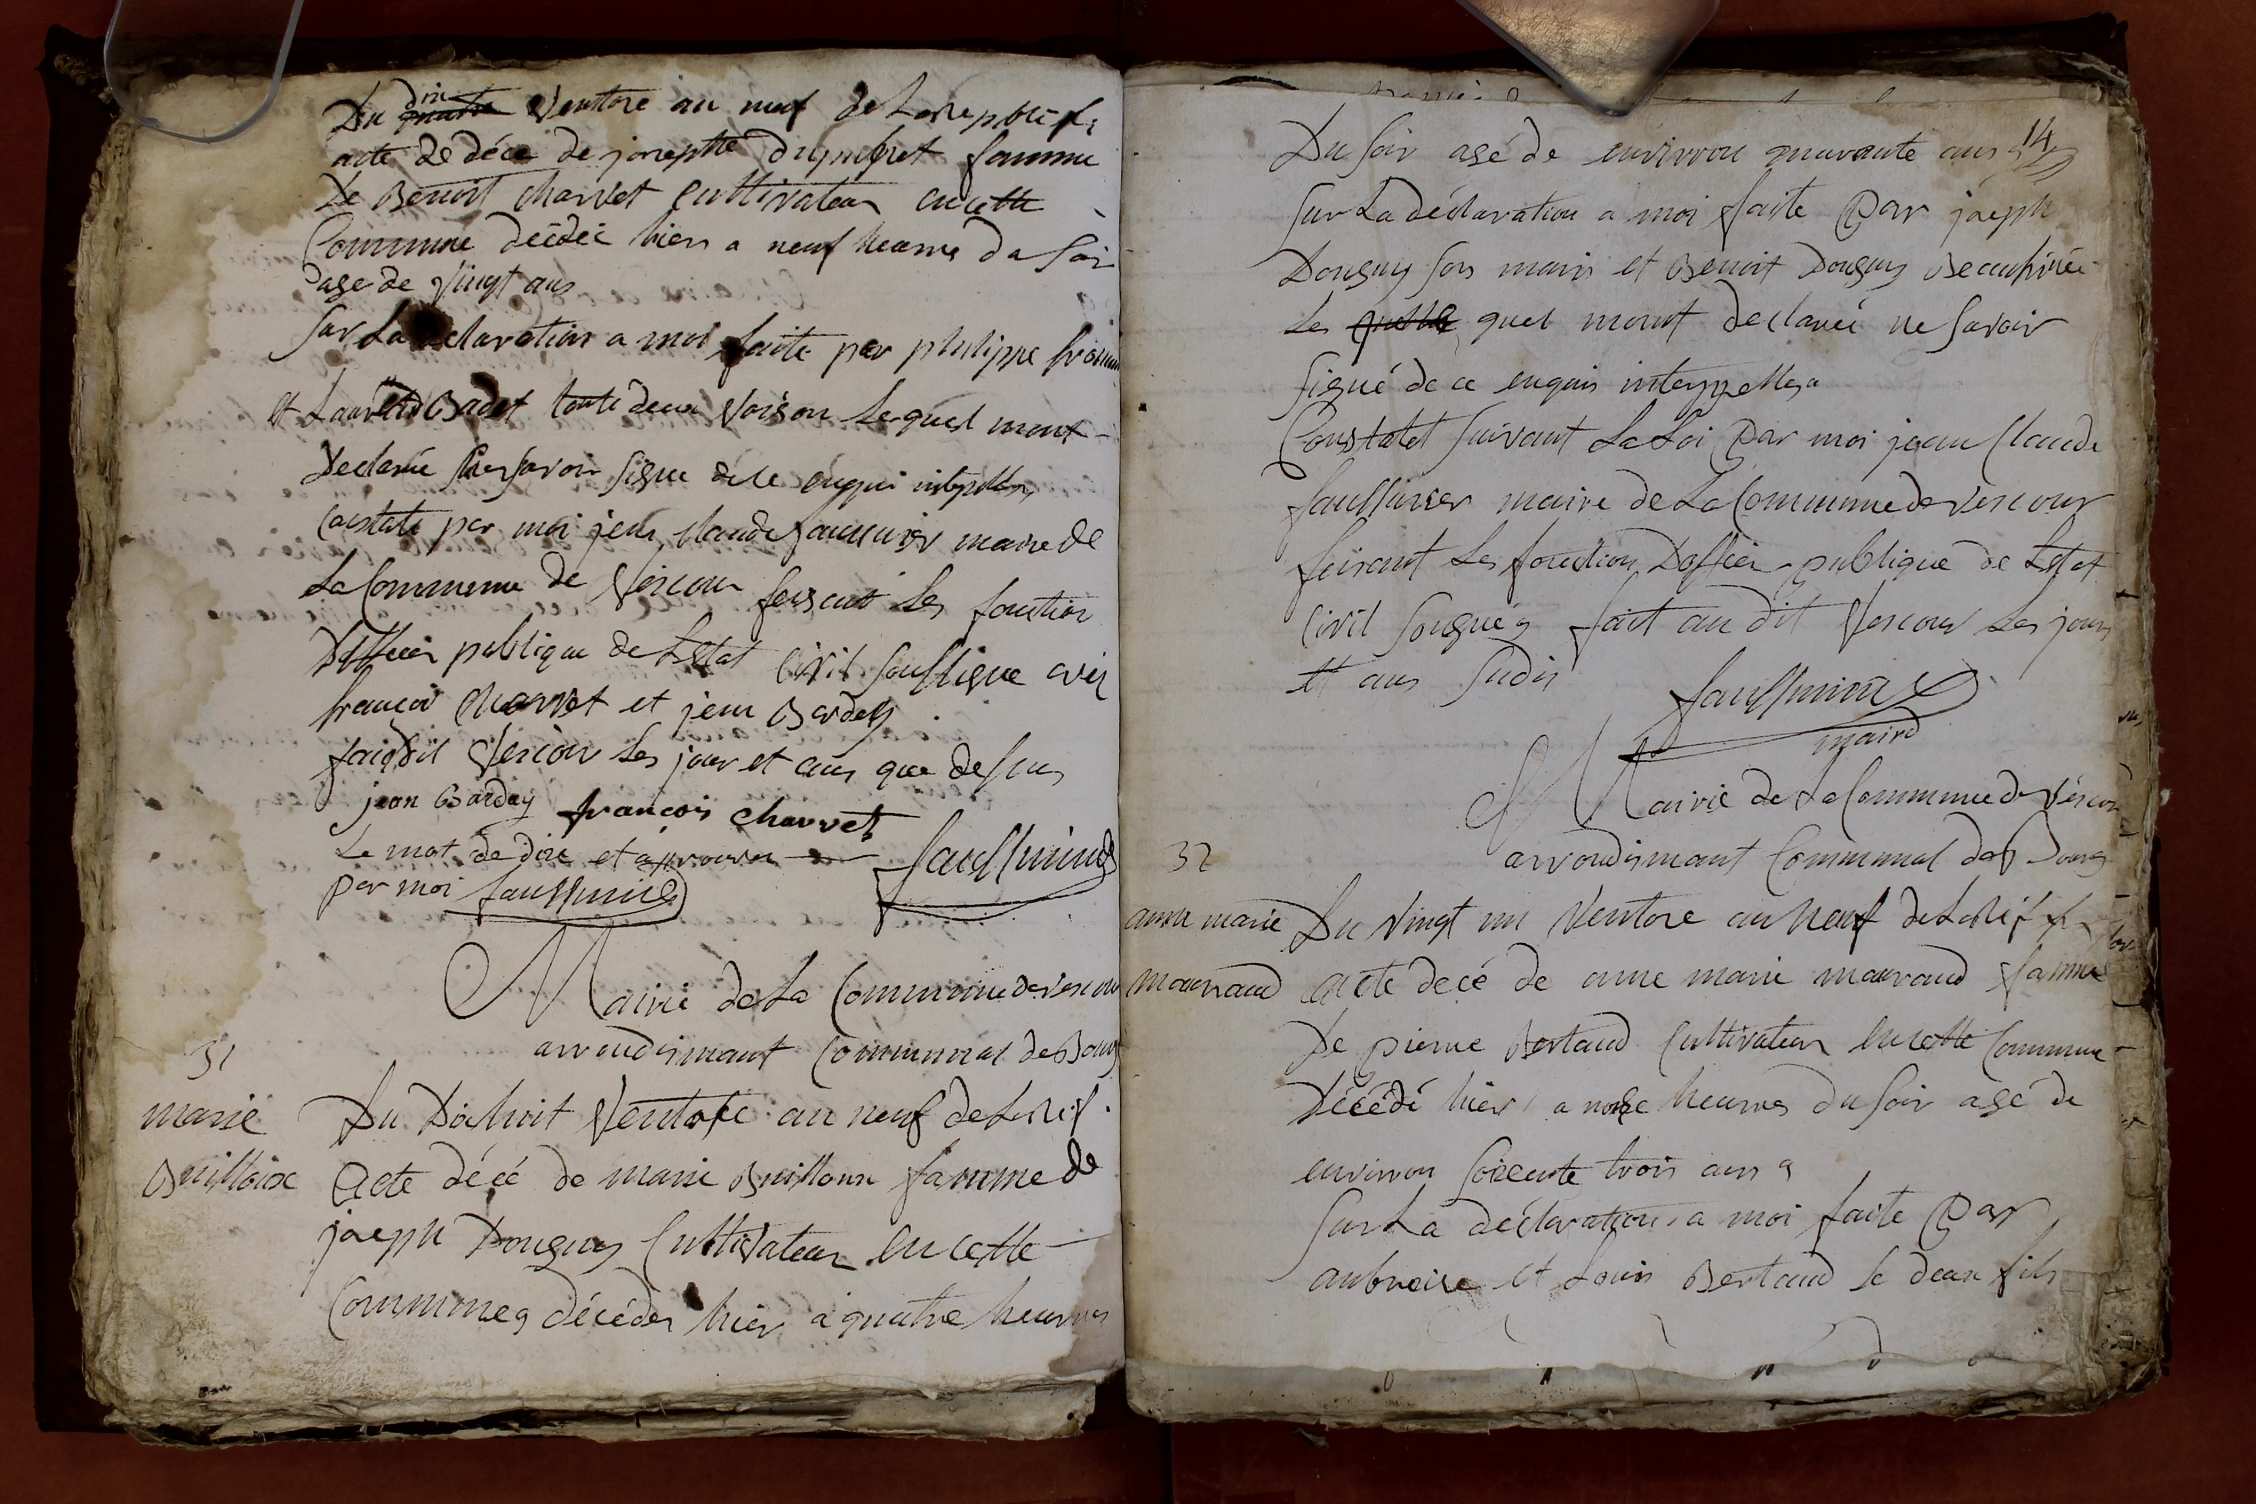 Du dix quatre Ventose an neuf de La republi
acte de décé de josephte femme
De Benoit charvet Cultivateur en cette
Commune décédée hier a neuf heurre du soir
age de vingt ans
sur La declaration a moi faite par philippe
et Laurend Badet toute deux voison Lequel mont
Declaré savoir signe de ce enqui
Constate par moi jean claude maire de
La Commune de Vescour fesant Les fonction
Dofficier publique de Letat civil soussigne avec
francois Charvet et jean Bardey
faiddit Vescour Les jour et ans que dessus
jean Barday francois charvet
Le mot de dix et approuvez
par moi
Mairie de La Commune de vescour
arrondismant Communal de Bourg
31
marie
Du Dixhuit Ventose an neuf de La
Acte décé de marie famme de
joseph Douguy Cultivateur en cette
Commune décéder hier a quatre heurres
14
Du soir agé de environ quarante ans
sur La déclaration a moi faite par joseph
Douguy son maris et Benoit Douguy
Les quel mont declaré ne savoir
signé de ce enquis interppelle
Constatet suivant La Loi par moi jean Claude
maire de La Commune de vescour
faisant Les fonction Doffier publique de Letat
Civil fait au dit Vescour Les jour
et ans sudis
maire
Mairie de La Commune de Vescour
arrondismant Communal de Bourg
32
anne marie Du vingt un Ventose an neuf de La
acte decé de anne marie famme
De pierre Bertaud Cultivateur en cette Commune
Décédé hier a heurres du soir agé de
environ soiceute trois ans
sur La déclaration a moi faite par
anbroise et Louis Bertaud se deux fils